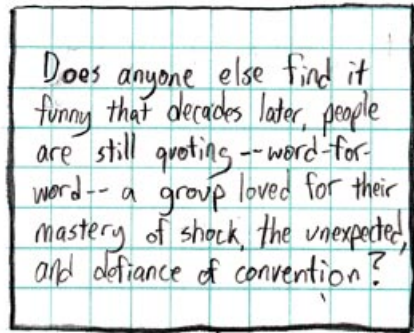 Does anyone else find it
funny that decades later, people
are still quoting --word-for-
word-- a group loved for their
mastery of shock, the unexpected,
and defiance of convention?